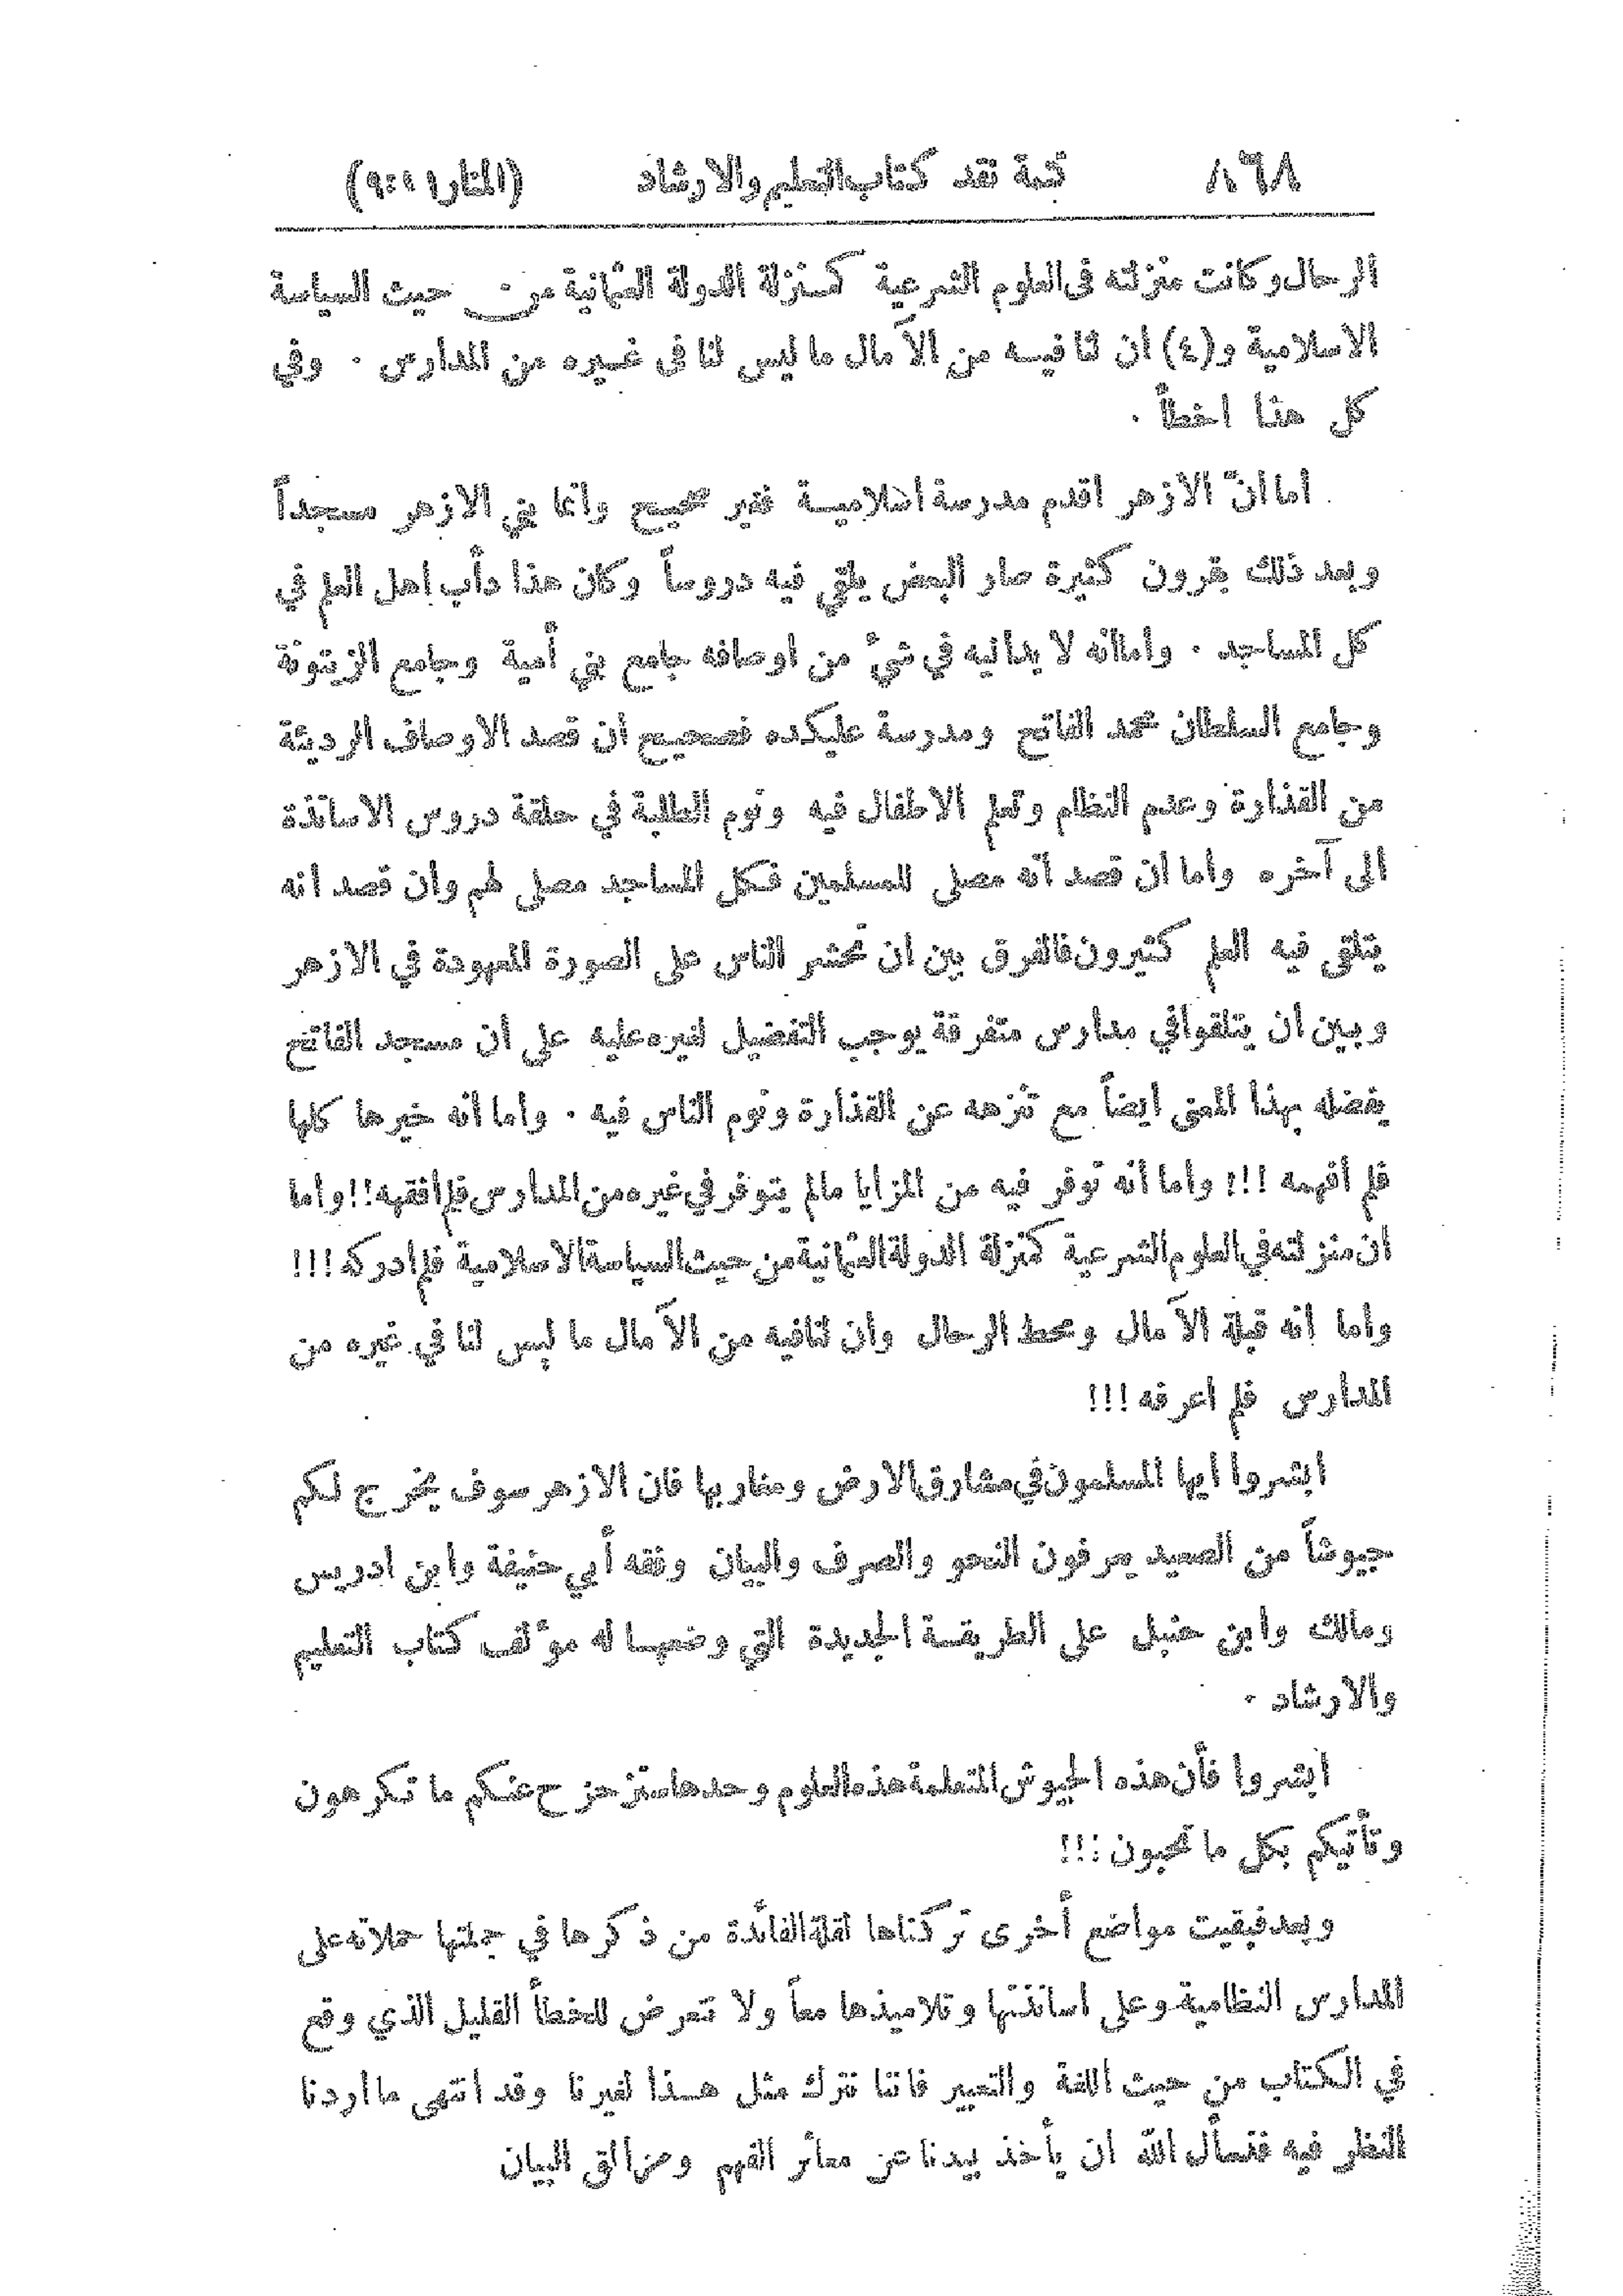 ٨٦٨ تتمة نقد كتاب التعليم والارشاد (المنار ١١ : ٩)
الرحال وكانت منزلته في العلوم الشرعية كمنزلة الدولة العثمانية من حيث السياسة
الاسلامية و(٤) ان لنا فيه من الآمال ما ليس لنا في غيره من المدارس . وفي
كل هذا اخطأ .
اما انّ الازهر اقدم مدرسة اسلامية فغير صحيح وانما بني الازهر مسجداً
وبعد ذلك بقرون كثيرة صار البعض يلقي فيه دروساً وكان هذا دأب اهل العلم في
كل المساجد . واما انه لا يدانيه في شيء من اوصافه جامع بني أمية وجامع الزيتونة
وجامع السلطان محمد الفاتح ومدرسة عليكده فصحيح أن قصد الاوصاف الرديئة
من القذارة وعدم النظام وتعلم الاطفال فيه ونوم الطلبة في حلقة دروس الاساتذة
الى آخره واما ان قصد أنه مصلى للمسلمين فكل المساجد مصلى لهم وأن قصد انه
يتلقى فيه العلم كثيرون فالفرق بين ان تُحشر الناس على الصورة المعهودة في الازهر
وبين ان يتلقوا في مدارس متفرقة يوجب التفضيل لغيره عليه على أن مسجد الفاتح
يفضله بهذا المعنى ايضاً مع تنزهه عن القذارة ونوم الناس فيه . واما أنه خيرها كلها
فلم أفهمه !!! واما أنه توفر فيه من المزايا مالم يتوفر في غيره من المدارس فلم افقهه!! واما
ان منزلته في العلوم الشرعية كمنزلة الدولة العثمانية من حيث السياسة الاسلامية فلم ادركه !!!
واما انه قبلة الآمال ومحط الرحال وان لنا فيه من الآمال ما ليس لنا في غيره من
المدارس فلم اعرفه !!!
ابشروا ايها المسلمون في مشارق الارض ومغاربها فان الازهر سوف يخرج لكم
جيوشاً من الصعيد يعرفون النحو والصرف والبيان وفقه أبي حنيفة وابن ادريس
ومالك وابن حنبل على الطريقة الجديدة التي وضعها له مؤلف كتاب التعليم
والارشاد .
ابشروا فأن هذه الجيوش المتعلمة هذه العلوم وحدها ستزحزح عنكم ما تكرهون
وتأتيكم بكل ما تحبون !!!
وبعد فبقيت مواضع أخرى تركناها لقلة الفائدة من ذكرها في جملتها حملاته على
المدارس النظامية وعلى اساتذتها وتلاميذها معاً ولا نتعرض للخطأ القليل الذي وقع
في الكتاب من حيث اللغة والتعبير فاننا نترك مثل هذا لغيرنا وقد انتهى ما اردنا
النظر فيه فنسأل الله ان يأخذ بيدنا عن معاثر الفهم ومزالق البيان